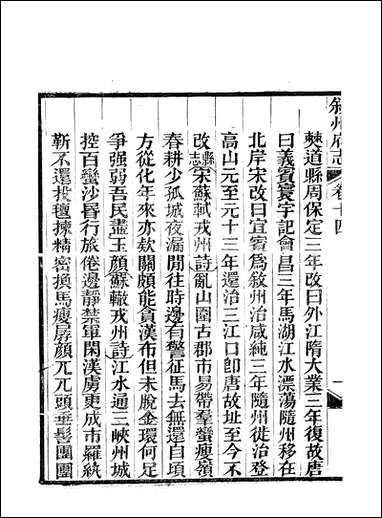 敘州府志 卷十四 一
僰道縣周保定三年改曰外江隋大業三年復故唐
曰義賓寰宇記會昌三年馬湖江水漂蕩隨州移在
北岸宋改曰宜賓爲敘州治咸純三年隨州徙治登
高山元至元十三年還治三江口卽唐故址至今不
改縣志宋蘇軾戎州詩亂山圍古郡市易帶羣蠻瘦嶺
春耕少孤城夜漏閒往時邊有警征馬去無還自頃
方從化年來亦欵關頗能貪漢布但未脫金環何足
爭强弱吾民盡玉顔蘇轍戎州詩江水通三峽州城
控百蠻沙昬行旅倦邊靜禁軍閑漢虜更成市羅紈
靳不還投氊揀精密換馬瘦孱顔兀兀頭垂髻團團